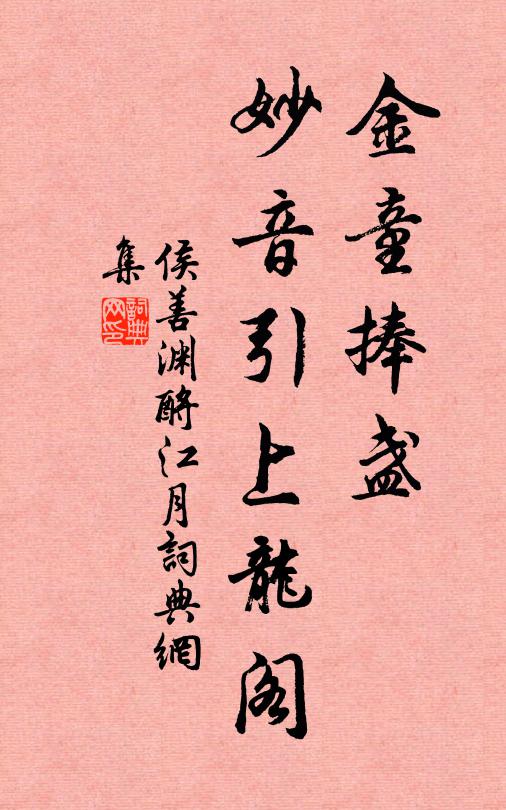 金童捧盏
妙音引上龍阁
侯善渊酹江月詞典網
集
詞典
网印